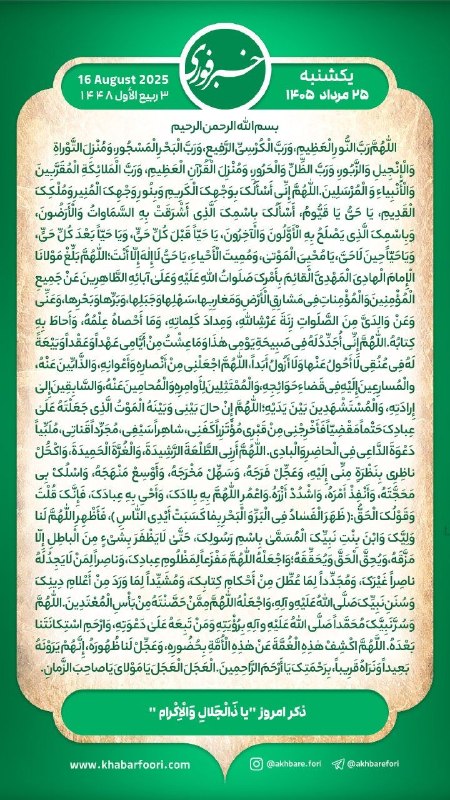 خبرفوری
یکشنبه
۲۵ مرداد ۱۴۰۵
16 August 2025
۳ ربیع الأول ۱۴۴۸
بسم الله الرحمن الرحیم
اللَّهُمَّ رَبَّ النُّورِ الْعَظِیمِ، وَرَبَّ الْکُرْسِیِّ الرَّفِیعِ، وَرَبَّ الْبَحْرِ الْمَسْجُورِ، وَمُنْزِلَ التَّوْراةِ
وَالْإِنْجِیلِ وَالزَّبُورِ، وَرَبَّ الظِّلِّ وَالْحَرُورِ، وَمُنْزِلَ الْقُرْآنِ الْعَظِیمِ، وَرَبَّ الْمَلائِکَةِ الْمُقَرَّبِینَ
وَالْأَنْبِیاءِ وَالْمُرْسَلِینَ. اللَّهُمَّ إِنِّی أَسْأَلُکَ بِوَجْهِکَ الْکَرِیمِ وَبِنُورِ وَجْهِکَ الْمُنِیرِ وَمُلْکِکَ
الْقَدِیمِ، یَا حَیُّ یَا قَیُّومُ، أَسْأَلُکَ بِاسْمِکَ الَّذِی أَشْرَقَتْ بِهِ السَّمَاوَاتُ وَالْأَرَضُونَ،
وَبِاسْمِکَ الَّذِی یَصْلَحُ بِهِ الْأَوَّلُونَ وَالْآخِرُونَ، یَا حَیّاً قَبْلَ کُلِّ حَیٍّ، وَیَا حَیّاً بَعْدَ کُلِّ حَیٍّ،
وَیَا حَیّاً حِینَ لَا حَیَّ، یَا مُحْیِیَ الْمَوْتیٰ، وَمُمِیتَ الْأَحْیاءِ، یَا حَیُّ لَاإِلهَ إِلّا أَنْتَ؛ اللَّهُمَّ بَلِّغْ مَوْلانَا
الْإِمامَ الْهادِیَ الْمَهْدِیَّ الْقائِمَ بِأَمْرِکَ صَلَواتُ اللهِ عَلَیْهِ وَعَلَی آبائِهِ الطَّاهِرِینَ عَنْ جَمِیعِ
الْمُؤْمِنِینَ وَالْمُؤْمِناتِ فِی مَشارِقِ الْأَرْضِ وَمَغارِبِها، سَهْلِها وَجَبَلِها، وَبَرِّها وَبَحْرِها، وَعَنِّی
وَعَنْ وَالِدَیَّ مِنَ الصَّلَواتِ زِنَةَ عَرْشِ اللهِ، وَمِدادَ کَلِماتِهِ، وَمَا أَحْصاهُ عِلْمُهُ، وَأَحاطَ بِهِ
کِتابُهُ. اللَّهُمَّ إِنِّی أُجَدِّدُ لَهُ فِی صَبِیحَةِ یَوْمِی هٰذَا وَمَا عِشْتُ مِنْ أَیَّامِی عَهْداً وَعَقْداً وَبَیْعَةً
لَهُ فِی عُنُقِی لَا أَحُولُ عَنْها وَلَا أَزُولُ أَبَداً. اللَّهُمَّ اجْعَلْنِی مِنْ أَنْصارِهِ وَأَعْوانِهِ، وَالذَّابِّینَ عَنْهُ،
وَالْمُسارِعِینَ إِلَیْهِ فِی قَضاءِ حَوَائِجِهِ، وَالْمُمْتَثِلِینَ لِأَوامِرِهِ وَالْمُحامِینَ عَنْهُ، وَالسَّابِقِینَ إِلَی
إِرادَتِهِ، وَالْمُسْتَشْهَدِینَ بَیْنَ یَدَیْهِ؛ اللَّهُمَّ إِنْ حالَ بَیْنِی وَبَیْنَهُ الْمَوْتُ الَّذِی جَعَلْتَهُ عَلَیٰ
عِبادِکَ حَتْماً مَقْضِیّاً فَأَخْرِجْنِی مِنْ قَبْرِی مُؤْتَزِراً کَفَنِی، شاهِراً سَیْفِی، مُجَرِّداً قَناتِی، مُلَبِّیاً
دَعْوَةَ الدَّاعِی فِی الْحاضِرِ وَالْبادِی. اللَّهُمَّ أَرِنِی الطَّلْعَةَ الرَّشِیدَةَ، وَالْغُرَّةَ الْحَمِیدَةَ، وَاکْحُلْ
ناظِرِی بِنَظْرَةٍ مِنِّی إِلَیْهِ، وَعَجِّلْ فَرَجَهُ، وَسَهِّلْ مَخْرَجَهُ، وَأَوْسِعْ مَنْهَجَهُ، وَاسْلُکْ بِی
مَحَجَّتَهُ، وَأَنْفِذْ أَمْرَهُ، وَاشْدُدْ أَزْرَهُ، وَاعْمُرِ اللَّهُمَّ بِهِ بِلادَکَ، وَأَحْیِ بِهِ عِبادَکَ، فَإِنَّکَ قُلْتَ
وَقَوْلُکَ الْحَقُّ: (ظَهَرَ الْفَسادُ فِی الْبَرِّ وَالْبَحْرِ بِما کَسَبَتْ أَیْدِی النَّاسِ)، فَأَظْهِرِ اللَّهُمَّ لَنا
وَلِیَّکَ وَابْنَ بِنْتِ نَبِیِّکَ الْمُسَمَّیٰ بِاسْمِ رَسُولِکَ، حَتَّی لَا یَظْفَرَ بِشَیْءٍ مِنَ الْباطِلِ إِلّا
مَزَّقَهُ، وَیُحِقَّ الْحَقَّ وَیُحَقِّقَهُ؛ وَاجْعَلْهُ اللَّهُمَّ مَفْزَعاً لِمَظْلُومِ عِبادِکَ، وَناصِراً لِمَنْ لَا یَجِدُ لَهُ
ناصِراً غَیْرَکَ، وَمُجَدِّداً لِمَا عُطِّلَ مِنْ أَحْکامِ کِتابِکَ، وَمُشَیِّداً لِمَا وَرَدَ مِنْ أَعْلامِ دِینِکَ
وَسُنَنِ نَبِیِّکَ صَلَّی اللهُ عَلَیْهِ وَآلِهِ، وَاجْعَلْهُ اللَّهُمَّ مِمَّنْ حَصَّنْتَهُ مِنْ بَأْسِ الْمُعْتَدِینَ. اللَّهُمَّ
وَسُرَّ نَبِیَّکَ مُحَمَّداً صَلَّی اللهُ عَلَیْهِ وَآلِهِ بِرُؤْیَتِهِ وَمَنْ تَبِعَهُ عَلَیٰ دَعْوَتِهِ، وَارْحَمِ اسْتِکانَتَنا
بَعْدَهُ. اللَّهُمَّ اکْشِفْ هٰذِهِ الْغُمَّةَ عَنْ هٰذِهِ الْأُمَّةِ بِحُضُورِهِ، وَعَجِّلْ لَنا ظُهُورَهُ، إِنَّهُمْ یَرَوْنَهُ
بَعِیداً وَنَرَاهُ قَرِیباً، بِرَحْمَتِکَ یَا أَرْحَمَ الرَّاحِمِینَ. الْعَجَلَ الْعَجَلَ یَا مَوْلایَ یَا صاحِبَ الزَّمانِ.
ذکر امروز "یا ذَالْجَلالِ وَالْإِکْرام"
www.khabarfoori.com
@akhbare.fori
@akhbarefori